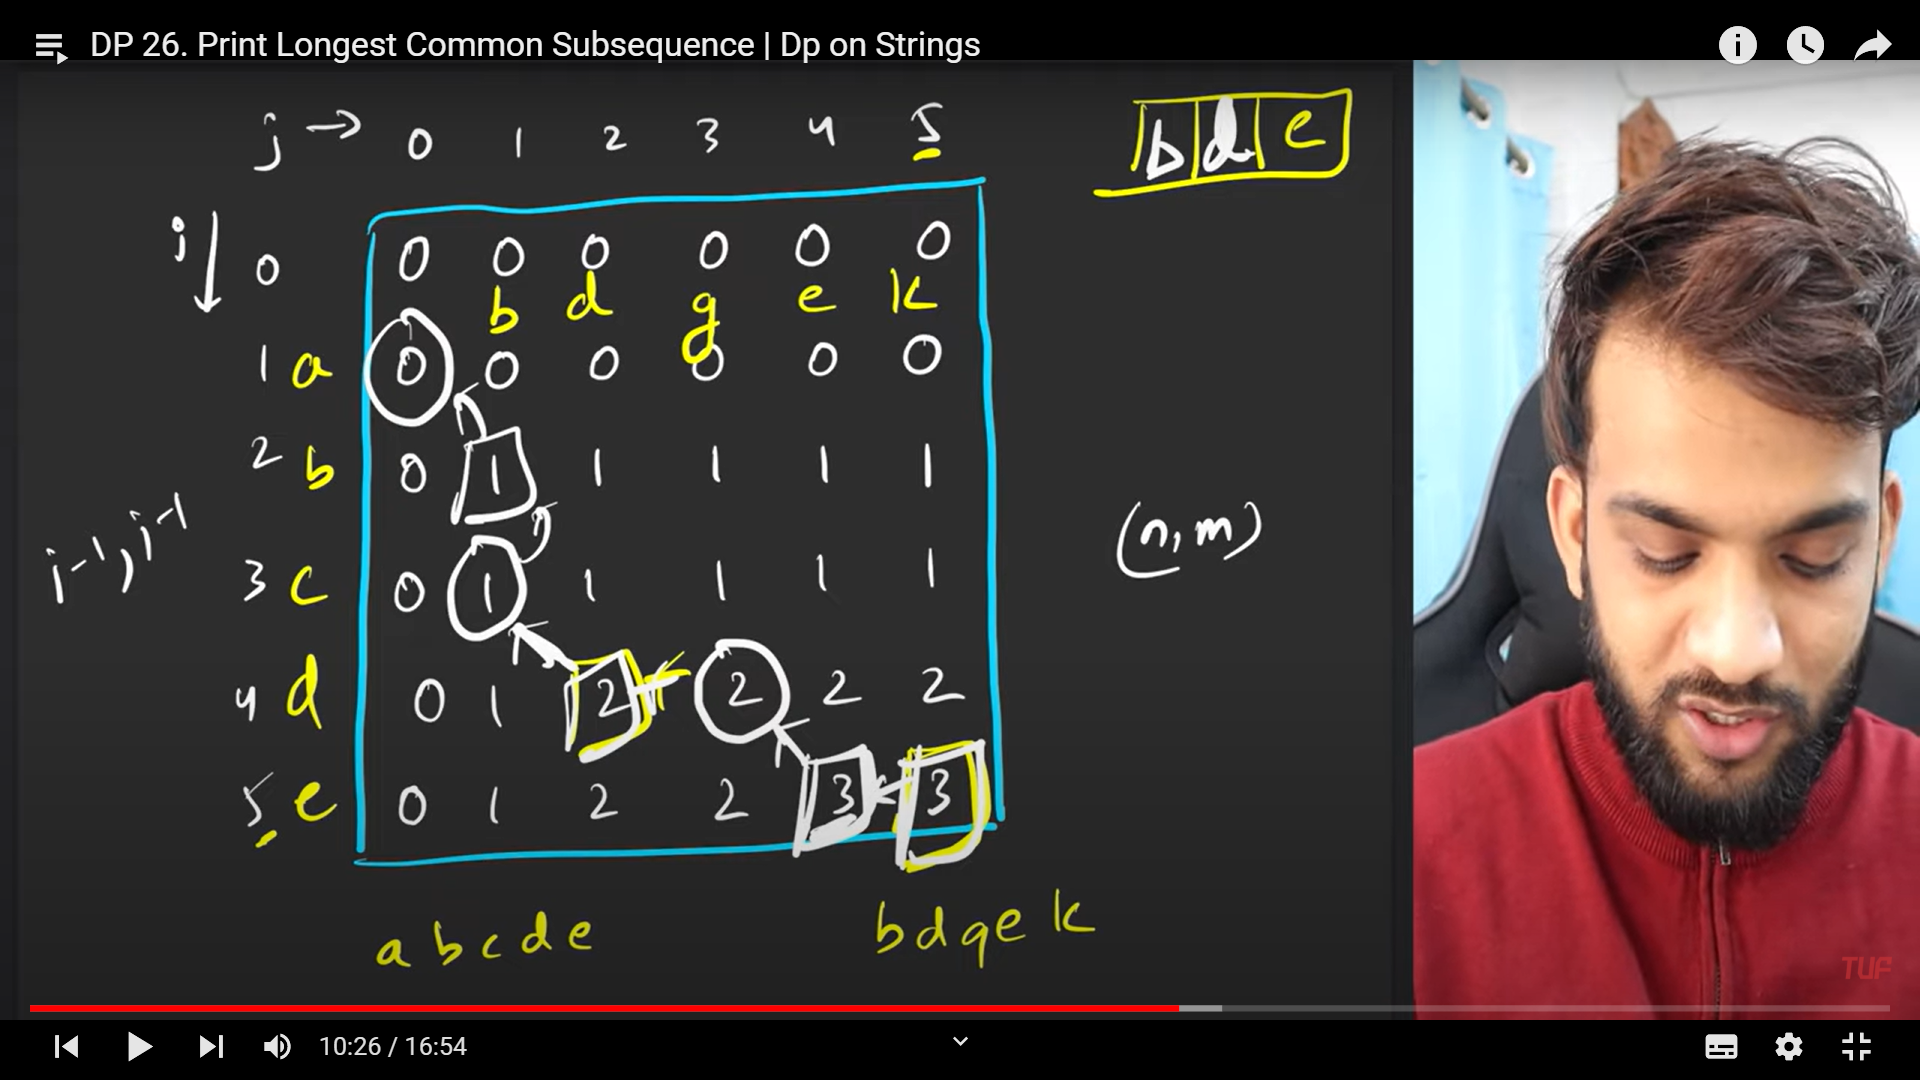 DP 26. Print Longest Common Subsequence | Dp on Strings
j → 0 1 2 3 4 5
b d e
i ↓
0 0 0 0 0 0 0
b d g e k
1 a 0 0 0 0 0 0
2 b 0 1 1 1 1 1
i-1, j-1
(n, m)
3 c 0 1 1 1 1 1
4 d 0 1 2 2 2 2
5 e 0 1 2 2 3 3
a b c d e
b d g e k
TUF
10:26 / 16:54